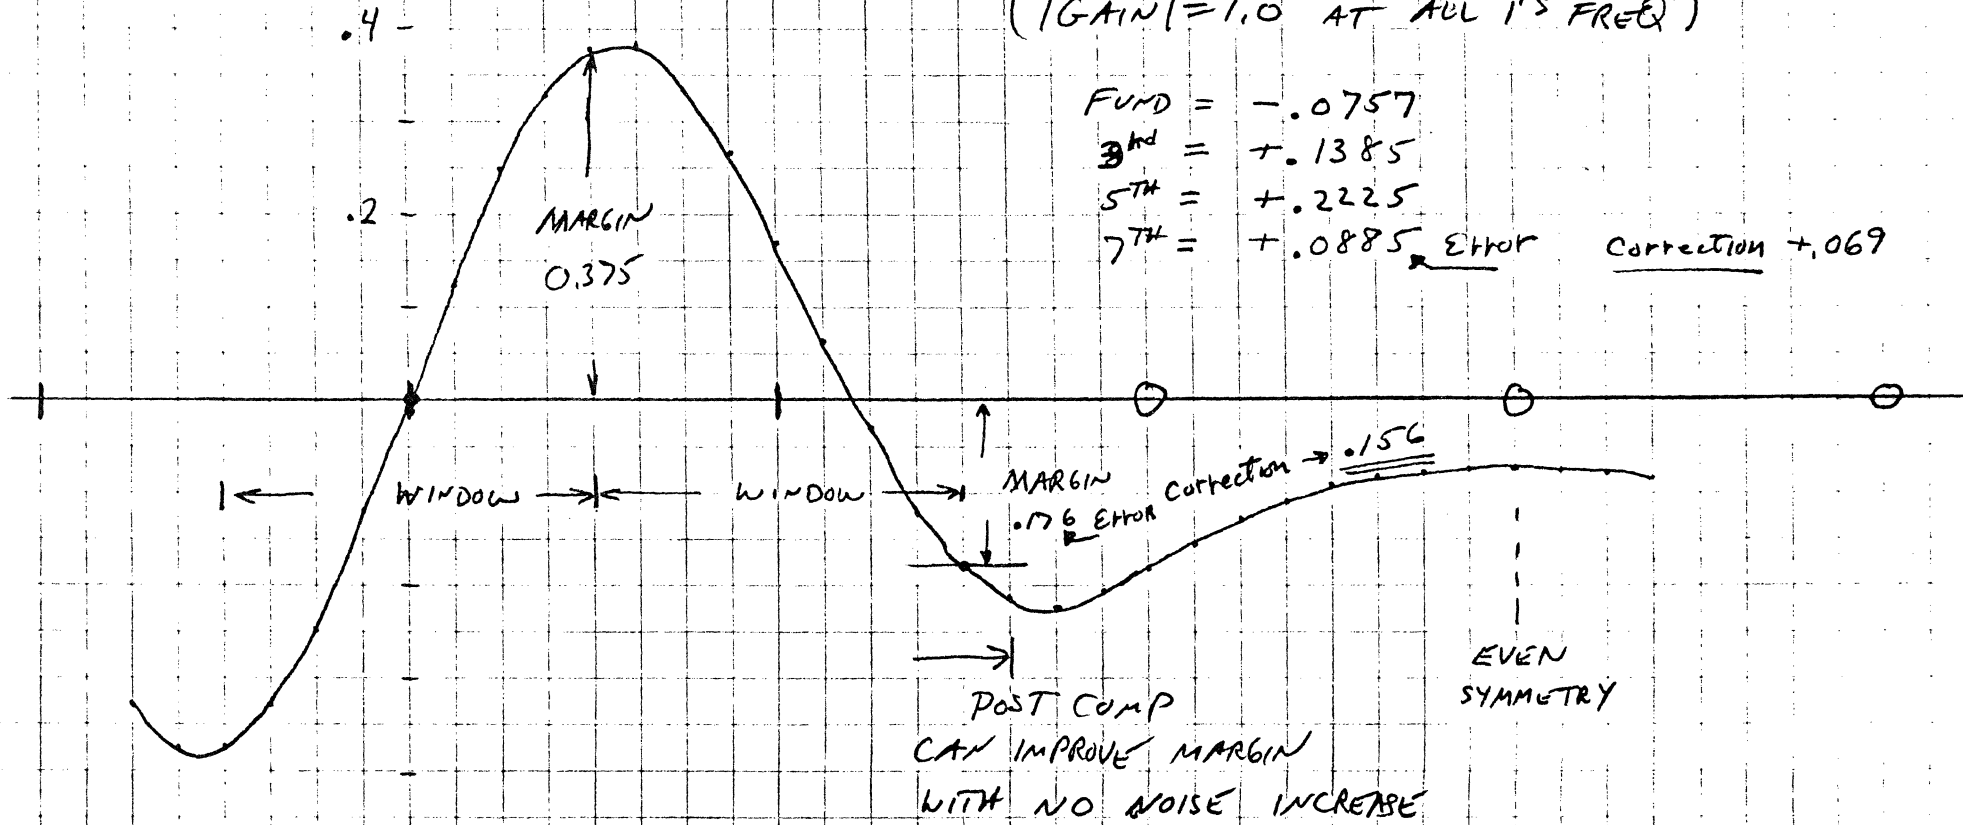 (|GAIN|=1.0 AT ALL 1'S FREQ)
.4
FUND = -.0757
3rd = +.1385
5TH = +.2225
7TH = +.0885 Error Correction +.069
.2
MARGIN
0.375
WINDOW
WINDOW
MARGIN
.176 Error Correction → .156
EVEN
SYMMETRY
POST COMP
CAN IMPROVE MARGIN
WITH NO NOISE INCREASE